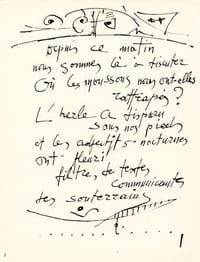 Depuis ce matin
nous sommes là à discuter
Où les moussons nous ont-elles
rattrapés?
L'herbe a disparu
sous nos pieds
et les adjectifs nocturnes
ont fleuri
filtres de textes
communicants
des souterrains